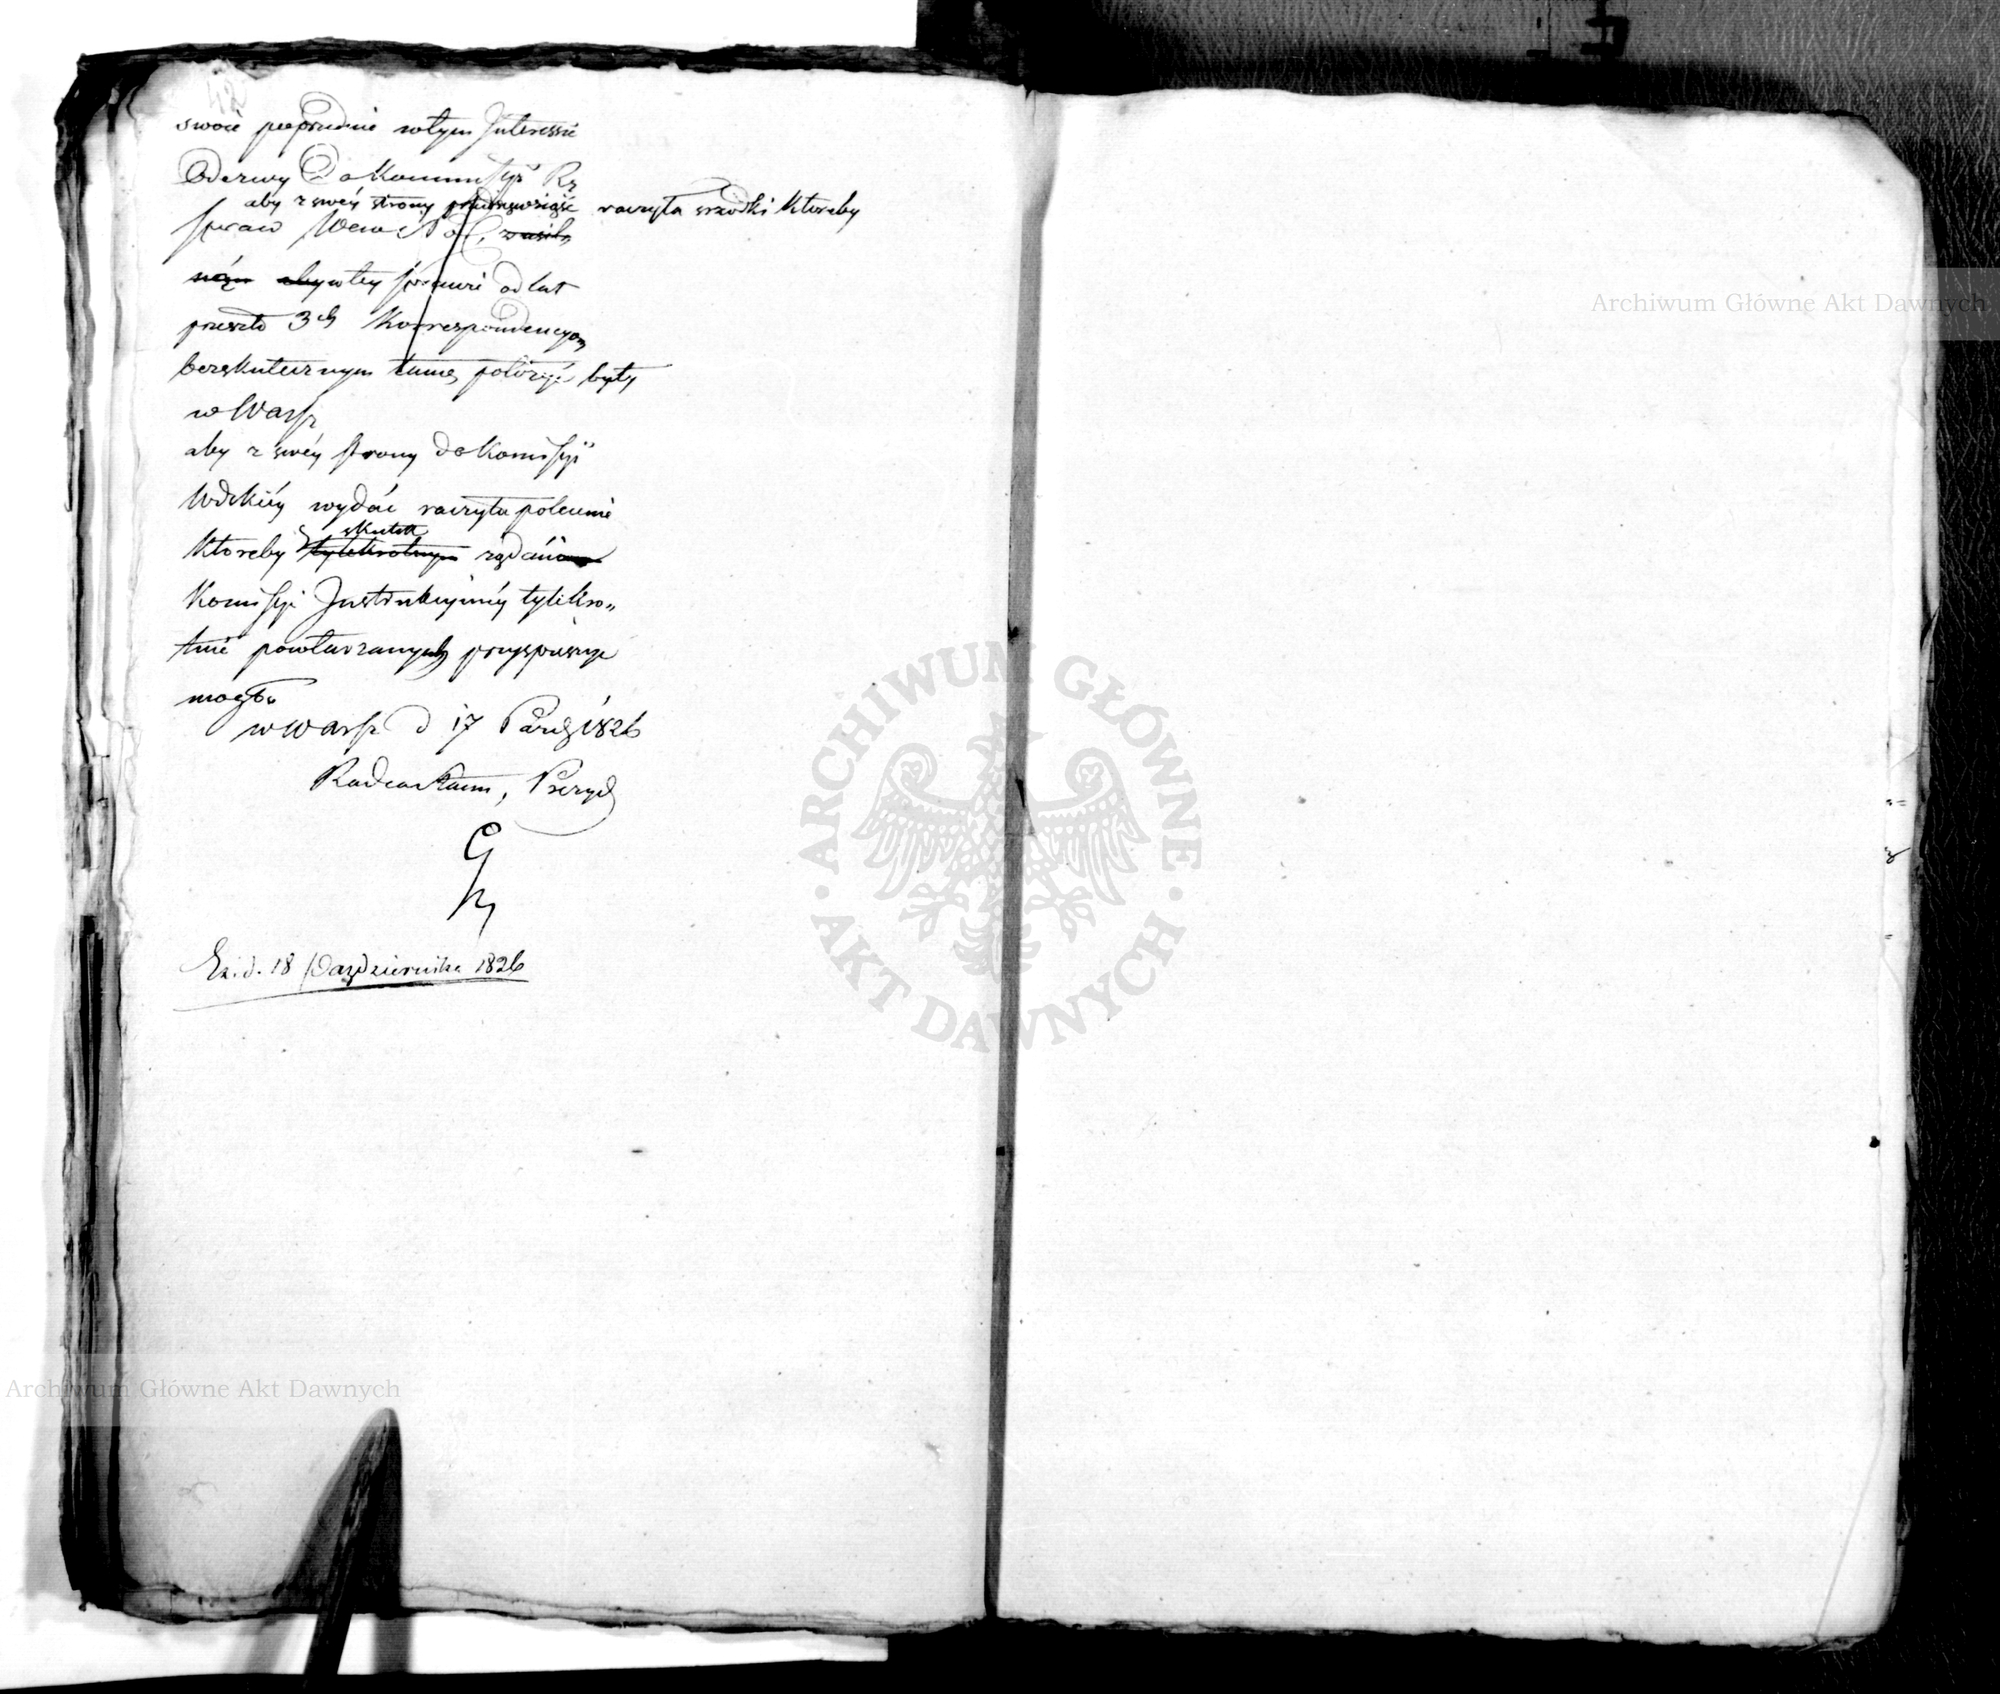 42
swoie poprzednie w tym Interessie
Odezwy Do Kommissyi Rz
aby z swéy strony przedsięwziąść raczyła srzodki któreby
Spraw Wew i Pol,
w tey sprawie od lat
przeszło 3ch Korrespondencyom
bezskutecznym tamę położyć były
w Warsz
aby z swéy strony do Komissyi
Wdzkiéy wydać raczyła polecenie
któreby skutek
tylekrotnym żądań
Komissyi Instrukcyinéy tylekro„
tnie powtarzanych przyspieszyć
mogło
w Warsz d 17 Paźdz 1826
Radca Stanu, Prezyd
Ex. d. 18 Października 1826
Archiwum Główne Akt Dawnych
Archiwum Główne Akt Dawnych
ARCHIWUM GŁÓWNE
AKT DAWNYCH